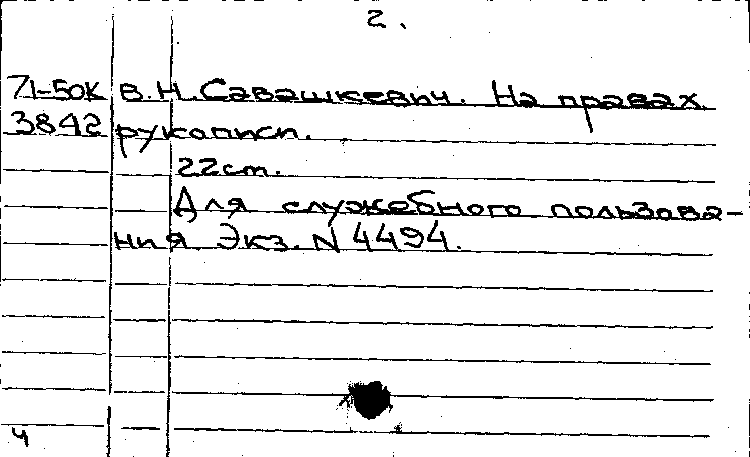 2.
71-50К В.Н.Савашкевич. На правах
3842 рукописи.
22см.
Для служебного пользова-
ния. Экз. N 4494.
ч